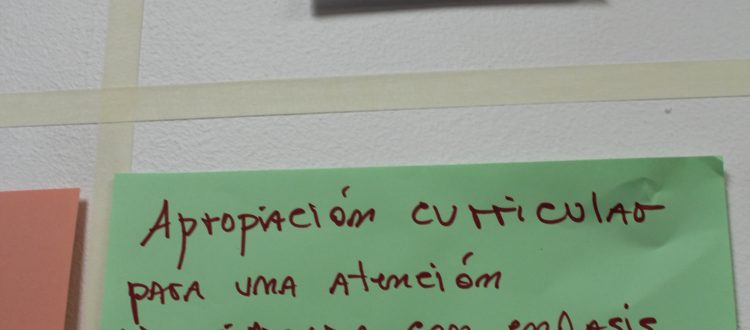 Apropiación curricular
para una atención
con